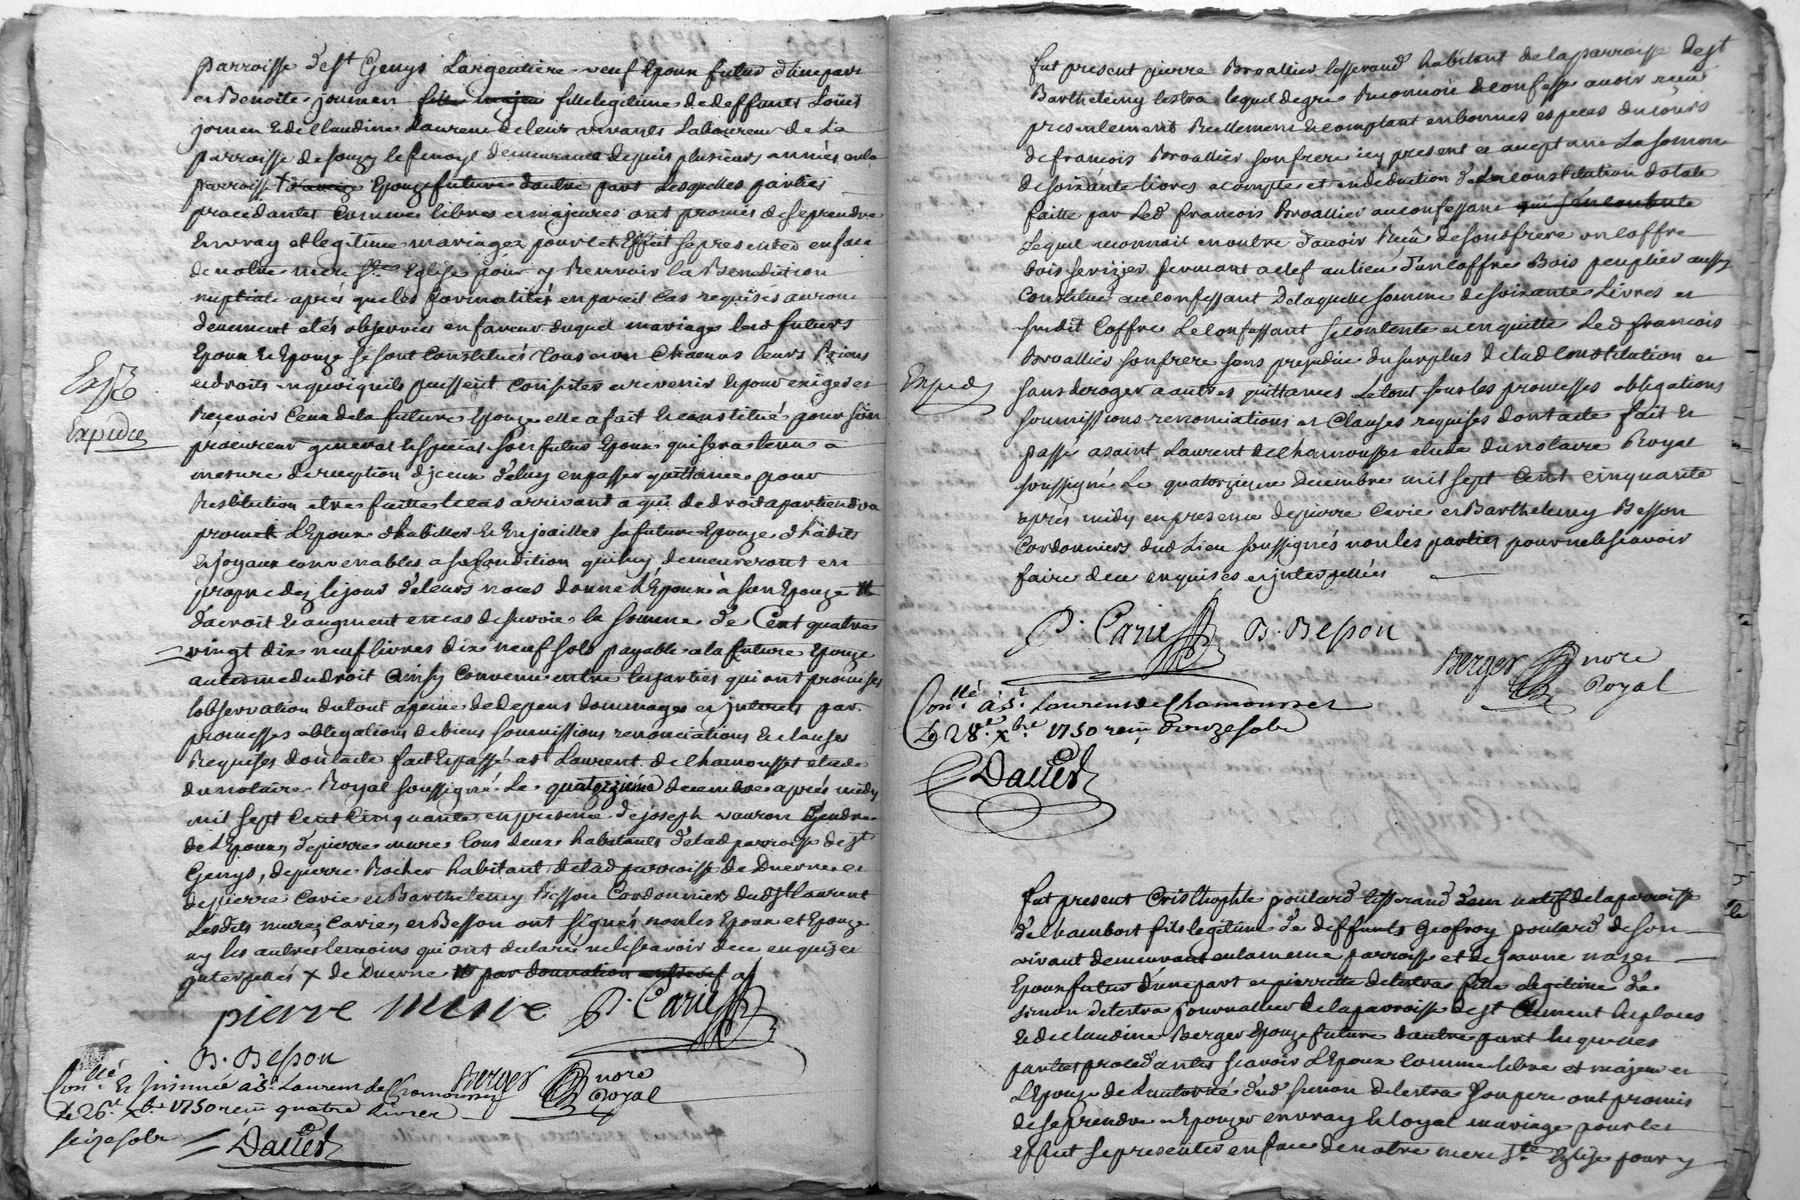 parroisse de st Genys Largentiere veuf Epoux futur d'une part
et Benoite jomen fille majeu fille legitime de deffunts Louis
jomen et de Claudine Laurent de leur vivants Laboureur de La
parroisse de souzy le fenoyl demeurante depuis plusieurs années en la
parroisse + Epouze future d'autre part Lesquelles parties
procedantes comme libres et majeures ont promis de se prendre
en vray et legitime mariage pour cet Effait se presenter en face
de notre mere Ste Eglise pour y Recevoir la Benediction
nuptiale aprés que les formalités en pareil cas requises auront
deuement etés observées en faveur duquel mariage lesd futurs
Epoux et Epouze se sont Constitués tous et un chacuns leurs
et droits en quoi qu'ils puissent consister et revenir et pour exiger et
Recevoir Ceux de la future Epouze elle a fait et constitué pour son
procureur general et special son futur Epoux qui sera tenu a
mesure de reception d'jceux d'eluy en passer quittance pour
Restitution etre faitte le cas arrivant a qui de droit apartiendra
promet L'Epoux d'habiller et Enjoailler sa future Epouze d'habits
et joyaux convenables a sa Condition qui luy demeureront en
propre dez le jour de leurs noces donne L'Epoux à son Epouze
d'acroit et augment en cas de survie la somme de Cent quatre
vingt dix neuf livres dix neuf sols payable a la future Epouze
au terme du droit Ainsy Convenu entre les parties qui ont promis
l'observation du tout a peine de depens dommages et jnterets par
promesses obligations de biens soumissions renonciations et clauses
Requises dont acte fait et passé a st Laurent de Chamousset etude
du notaire Royal soussigné Le quatorzieme decembre aprés midy
mil sept Cent Cinquante en presence de joseph vauron Gendre
de L'Epoux, de pierre mure tous deux habitants de lad parroisse de st
Genys, de pierre Rocher habitant de lad parroisse de Duerne et
de pierre Carie et Barthelemy Besson Cordonniers dud st Laurent
Lesdits mure, Carie, et Besson ont signés non les Epoux et Epouze
ny les autres temoins qui ont declaré ne le scavoir de ce enquis et
jnterpellés x de Duerne
pierre mure P. Carie
B. Besson
Berger nore
Royal
Conllé Et jnsinué à St Laurent de Chamousset
Le 26e xbre 1750 reçu quatre livres
seize sols
Dacier
Exp
Expediée
fut present pierre Broallier tisserand habitant de la parroisse de st
Barthelemy lestra lequel de gré Reconnoit et confesse avoir receu
presentement Reellement et comptant en bonnes especes du cours
de francois Broallier son frere icy present et aceptant La somme
de soixante livres a compte et en deduction de la constitution dotale
faitte par led francois Broallier au confessant
Lequel reconnoit en outre d'avoir Reçu de son dit frere un coffre
bois serizier fermant a clef au lieu d'un coffre Bois peuplier aussy
Constitué au confessant De laquelle somme de soixante Livres et
susdit Coffre Le confessant se contente et en quitte Led francois
Broallier son frere sans prejudice du surplus de lad Constitution et
sans deroger a autres quittances Le tout sous les promesses obligations
soumissions renonciations et Clauses requises dont acte fait et
passé a saint Laurent de chamousset etude du notaire Royal
soussigné Le quatorzieme Decembre mil sept Cent cinquante
aprés midy en presence de pierre Carie et Barthelemy Besson
Cordonniers dud Lieu soussignés non les parties pour ne le scavoir
faire de ce enquises et jnterpellées
Exped
P. Carie B. Besson
Berger nore
Royal
Conllé à St Laurent de Chamousset
Le 28e xbre 1750 reçu douze sols
Dacier
fut present Cristhophle poulard tisserand natif de la parroisse
de chambost fils legitime de deffunts Geofroy poulard de son
vivant demeurant en la meme parroisse et de jeanne
Epoux futur d'une part et pierrette delestra fille Legitime de
simon delestra journallier de la parroisse de st Clement les places
et de claudine Berger Epouze future d'autre part lesquelles
parties procedantes scavoir L'Epoux comme libre et majeur et
L'Epouze de l'autorité dud simon Delestra son pere ont promis
de se prendre et Epouzer en vray et loyal mariage pour cet
Effait se presenter en face de notre mere Ste Eglise pour y